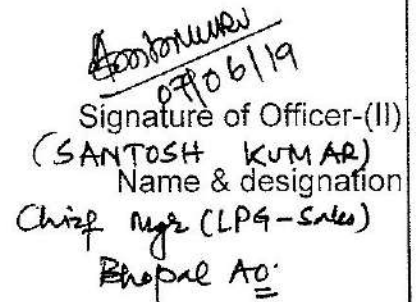 07/06/19
Signature of Officer-(II)
(SANTOSH KUMAR)
Name & designation
Chief Mgr (LPG-Sales)
Bhopal AO.